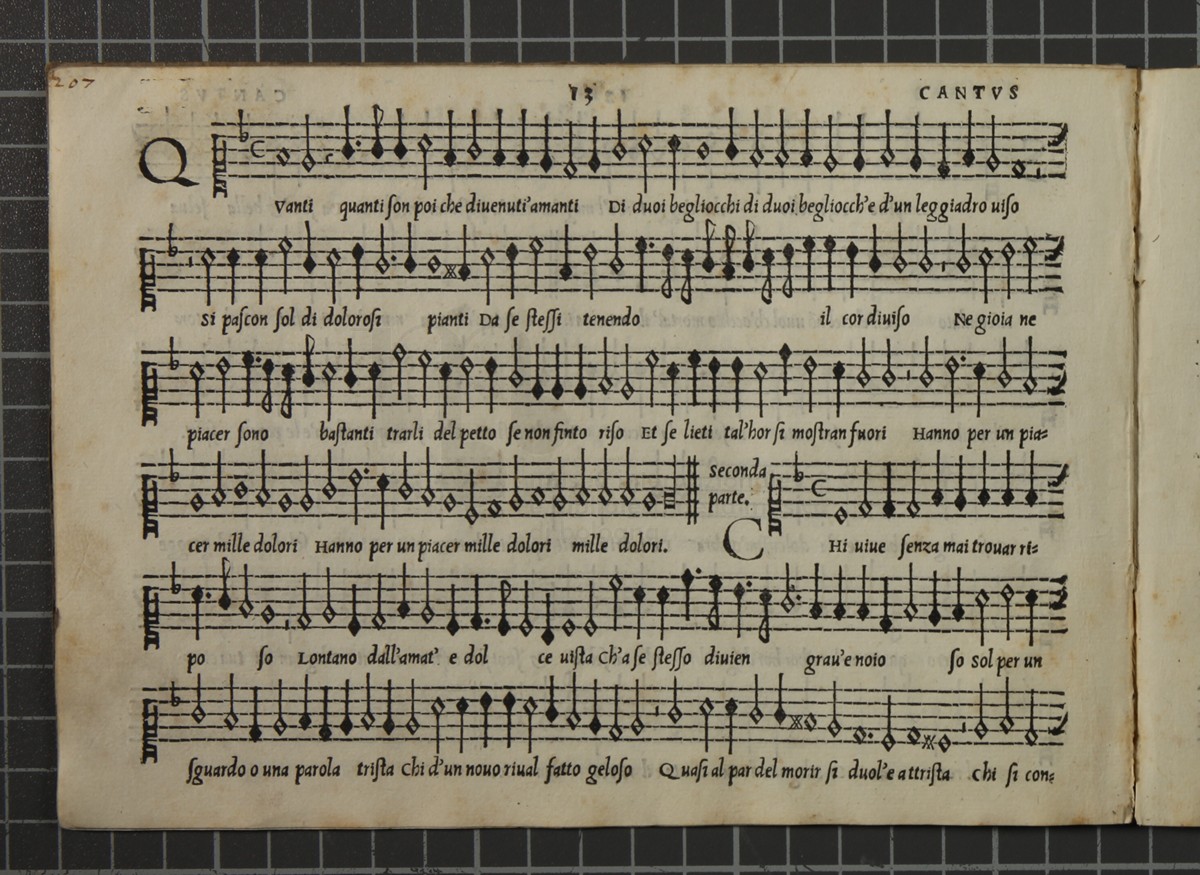 207
13
CANTVS
Q Vanti quanti ſon poi che diuenuti'amanti Di duoi begliocchi di duoi begliocch'e d'un leggiadro uiſo
Si paſcon ſol di doloroſi pianti Da ſe ſteſſi tenendo il cor diuiſo Ne gioia ne
piacer ſono baſtanti trarli del petto ſe non finto riſo Et ſe lieti tal'hor ſi moſtran fuori Hanno per un pia=
cer mille dolori Hanno per un piacer mille dolori mille dolori.
seconda
parte.
C Hi uiue ſenza mai trouar ri=
po ſo Lontano dall'amat' e dol ce uiſta Ch'a ſe ſteſſo diuien grau'e noio ſo sol per un
ſguardo o una parola triſta Chi d'un nouo riual fatto geloſo Quaſi al par del morir ſi duol'e attriſta Chi ſi con=